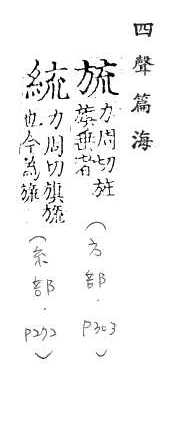 四聲篇海
旒
力周切旌
旗垂者
(方部.P303)
統
力周切旗旒
也今為旒
(糸部.P272)